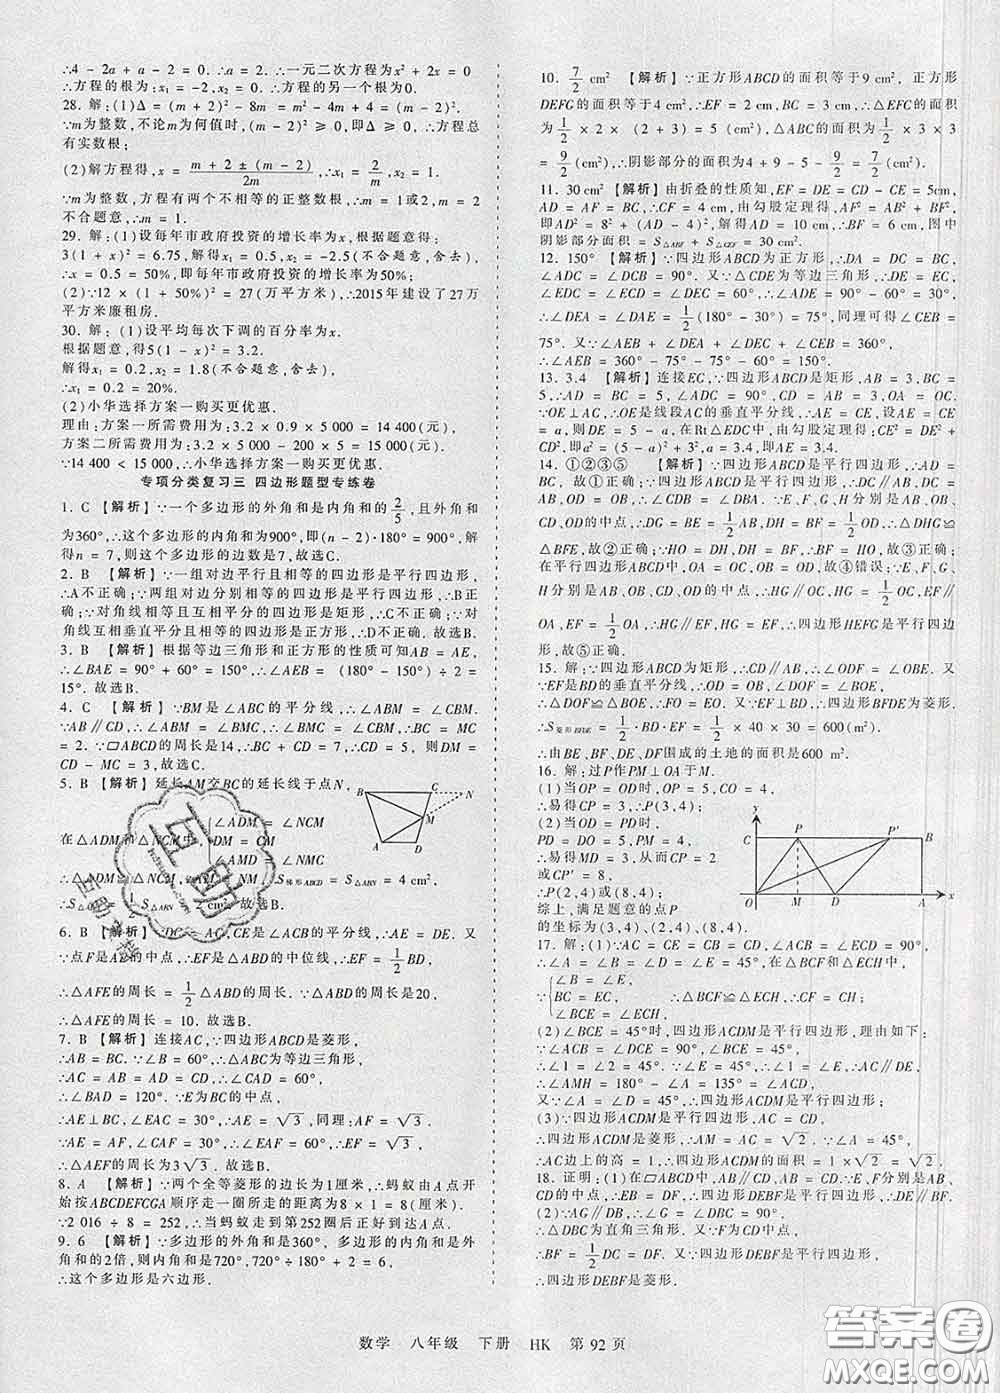 ∴4 - 2a + a - 2 = 0. ∴a = 2. ∴一元二次方程为x² + 2x = 0
∴方程的根为: x₁ = 0, x₂ = -2.
28. 解: (1)Δ = (m + 2)² - 8m = m² - 4m + 4 = (m - 2)².
∵m为整数,不论m为何值时, (m - 2)² ≥ 0, 即Δ ≥ 0. ∴方程总
有实数根;
(2)解方程得, x = (m + 2 ± (m - 2))/2m, ∴x₁ = 2/m, x₂ = 1.
∵m为整数, 方程有两个不相等的正整数根, ∴m = 1或2. m = 2
不合题意, ∴m = 1.
29. 解: (1)设每年市政府投资的增长率为x, 根据题意得:
3(1 + x)² = 6.75, 解得x₁ = 0.5, x₂ = -2.5(不合题意,舍去),
∴x = 0.5 = 50%, 即每年市政府投资的增长率为50%;
(2)∵12 × (1 + 50%)² = 27(万平方米), ∴2015年建设了27万
平方米廉租房.
30. 解: (1)设平均每次下调的百分率为x.
根据题意, 得5(1 - x)² = 3.2.
解得x₁ = 0.2, x₂ = 1.8(不合题意, 舍去).
∴x₁ = 0.2 = 20%.
(2)小华选择方案一购买更优惠.
理由: 方案一所需费用为: 3.2 × 0.9 × 5 000 = 14 400(元),
方案二所需费用为: 3.2 × 5 000 - 200 × 5 = 15 000(元),
∵14 400 < 15 000, ∴小华选择方案一购买更优惠.
专项分类复习三 四边形题型专练卷
1. C 【解析】∵一个多边形的外角和是内角和的2/5, 且外角和
为360°, ∴这个多边形的内角和为900°, 即(n - 2)·180° = 900°, 解
得n = 7, 则这个多边形的边数是7, 故选C.
2. B 【解析】∵一组对边平行且相等的四边形是平行四边形,
∴A不正确; ∵两组对边分别相等的四边形是平行四边形, ∴B正
确; ∵对角线相等且互相平分的四边形是矩形, ∴C不正确; ∵对
角线互相垂直平分且相等的四边形是正方形, ∴D不正确. 故选B.
3. B 【解析】根据等边三角形和正方形的性质可知AB = AE,
∴∠BAE = 90° + 60° = 150°, ∴∠AEB = (180° - 150°) ÷ 2 =
15°. 故选B.
4. C 【解析】∵BM是∠ABC的平分线, ∴∠ABM = ∠CBM.
∵AB∥CD, ∴∠ABM = ∠BMC, ∴∠BMC = ∠CBM, ∴BC = MC =
2. ∵▱ABCD的周长是14, ∴BC + CD = 7, ∴CD = 5, 则DM =
CD - MC = 3, 故选C.
5. B 【解析】延长AM交BC的延长线于点N,
在△ADM和△NCM中, {∠ADM = ∠NCM
DM = CM
∠AMD = ∠NMC
∴△ADM≌△NCM, ∴AM = NM, ∴S梯形ABCD = S△ABN = 4 cm²,
∴S△ABM = 1/2 S△ABN = 2 cm². 故选B.
6. B 【解析】∵DC = AC, CE是∠ACB的平分线, ∴AE = DE. 又
∵点F是AB的中点, ∴EF是△ABD的中位线, ∴EF = 1/2 BD,
∴△AFE的周长 = 1/2 △ABD的周长. ∵△ABD的周长是20,
∴△AFE的周长 = 10. 故选B.
7. B 【解析】连接AC, ∵四边形ABCD是菱形,
∴AB = BC. ∵∠B = 60°, ∴△ABC为等边三角形,
∴AC = AB = AD = CD, ∴∠ACB = 60°,
∴∠BAD = 120°. ∵E为BC的中点,
∴AE⊥BC, ∠EAC = 30°, ∴AE = √3, 同理: AF = √3,
∵AE = AF, ∠CAF = 30°, ∴∠EAF = 60°, ∴EF = √3,
∴△AEF的周长为3√3. 故选B.
8. A 【解析】∵两个全等菱形的边长为1厘米, ∴蚂蚁由A点开
始按ABCDEFCGA顺序走一圈所走的距离为8 × 1 = 8(厘米).
∵2 016 ÷ 8 = 252, ∴当蚂蚁走到第252圈后正好达到A点.
9. 6 【解析】∵多边形的外角和是360°, 多边形的内角和是外
角和的2倍, 则内角和是720°, 720° ÷ 180° + 2 = 6,
∴这个多边形是六边形.
10. 7/2 cm² 【解析】∵正方形ABCD的面积等于9 cm², 正方形
DEFG的面积等于4 cm², ∴EF = 2 cm, BC = 3 cm, ∴△EFC的面积
为1/2 × 2 × (2 + 3) = 5 (cm²), △ABC的面积为1/2 × 3 × 3 =
9/2 (cm²), ∴阴影部分的面积为4 + 9 - 5 - 9/2 = 7/2 (cm²).
11. 30 cm² 【解析】由折叠的性质知, EF = DE = CD - CE = 5cm,
AD = AF = BC, ∴CF = 4 cm, 由勾股定理得, AF² = AB² + BF²,
即AD² = 8² + (AD - 4)², 解得AD = 10 cm, ∴BF = 6 cm, 图中
阴影部分面积 = S△ABF + S△CEF = 30 cm².
12. 150° 【解析】∵四边形ABCD为正方形, ∴DA = DC = BC,
∠ADC = ∠BCD = 90°. 又∵△CDE为等边三角形, ∴DE = EC,
∠EDC = ∠ECD = ∠DEC = 60°, ∴∠ADE = 30°,
∴∠DEA = ∠DAE = 1/2(180° - 30°) = 75°, 同理可得∠CEB =
75°. 又∵∠AEB + ∠DEA + ∠DEC + ∠CEB = 360°,
∴∠AEB = 360° - 75° - 75° - 60° = 150°.
13. 3.4 【解析】连接EC, ∵四边形ABCD为矩形, AB = 3, BC
= 5, ∴∠ADC = 90°, CD = AB = 3, AD = BC = 5, OA = OC.
∵OE⊥AC, ∴OE是线段AC的垂直平分线, ∴AE = CE, 设AE = CE =
a, 则DE = 5 - a, 在Rt△EDC中, 由勾股定理得: CE² = DE² +
CD², 即a² = (5 - a)² + 3², a = 3.4, 即AE = 3.4.
14. ①②③⑤ 【解析】∵四边形ABCD是平行四边形, ∴AD =
BC, AD∥BC, DC = AB, DC∥AB, 故①正确; ∵四边形ABCD是平
行四边形, ∴OD = OB, OA = OC, ∵E、F、G、H分别是AB、OB、CD、
OD的中点, ∴DG = BE = 1/2 AB, DH = BF = 1/2 OD, ∴△DHG≌
△BFE, 故②正确; ∵HO = DH, DH = BF, ∴BF = HO, 故③正确;
在平行四边形中, OA = OC, OB = OD, 故④错误; ∵E、F、G、
H分别是AB、OB、CD、OD的中点, ∴HG∥OC, HG = 1/2 OC, EF∥
OA, EF = 1/2 OA, ∴HG∥EF, HG = EF, ∴四边形HEFG是平行四边
形, 故⑤正确.
15. 解: ∵四边形ABCD为矩形, ∴CD∥AB, ∴∠ODF = ∠OBE. 又
∵EF是BD的垂直平分线, ∴OD = OB, ∠DOF = ∠BOE,
∴△DOF≌△BOE, ∴FO = EO. 又∵BD⊥EF, ∴四边形BFDE为菱形,
∴S菱形BFDE = 1/2 · BD · EF = 1/2 × 40 × 30 = 600(m²)
∴由BE、BF、DE、DF围成的土地的面积是600 m².
16. 解: 过P作PM⊥OA于M.
(1)当OP = OD时, OP = 5, CO = 4,
∴易得CP = 3, ∴P(3, 4);
(2)当OD = PD时,
PD = DO = 5, PM = 4,
∴易得MD = 3, 从而CP = 2
或CP' = 8,
∴P(2, 4)或(8, 4);
综上, 满足题意的点P
的坐标为(3, 4)、(2, 4)、(8, 4).
17. 解: (1)∵AC = CE = CB = CD, ∠ACB = ∠ECD = 90°,
∴∠A = ∠B = ∠D = ∠E = 45°. 在△BCF和△ECH中,
∵{∠B = ∠E
BC = EC, ∴△BCF≌△ECH, ∴CF = CH;
∠BCE = ∠ECH
(2)∠BCE = 45°时, 四边形ACDM是平行四边形, 理由如下:
∵∠ACB = ∠DCE = 90°, ∠BCE = 45°,
∴∠1 = ∠2 = 45°. ∵∠E = 45°, ∴∠1 = ∠E, ∴AC∥DE,
∴∠AMH = 180° - ∠A = 135° = ∠ACD,
又∵∠A = ∠D = 45°, ∴四边形ACDM是平行四边形;
(3)∵四边形ACDM是平行四边形, AC = CD,
∴四边形ACDM是菱形, ∴AM = AC = √2. ∵∠A = 45°,
∴AC边上的高 = 1, ∴四边形ACDM的面积 = 1 × √2 = √2.
18. 证明: (1)在▱ABCD中, AB∥CD, AB = CD.
∵点E、F分别为CD、AB的中点, ∴DE = 1/2 DC, BF = 1/2 AB,
∴DE∥BF, DE = BF, ∴四边形DEBF是平行四边形;
(2)∵AG∥BD, ∴∠G = ∠DBC = 90°,
∴△DBC为直角三角形. 又∵F为边CD的中点,
∴BF = 1/2 DC = DF. 又∵四边形DEBF是平行四边形,
∴四边形DEBF是菱形.
B C N M A D
y C P P' B O M D A x
互助
答案圈
MXQE.COM
数学 八年级 下册 HK 第92页